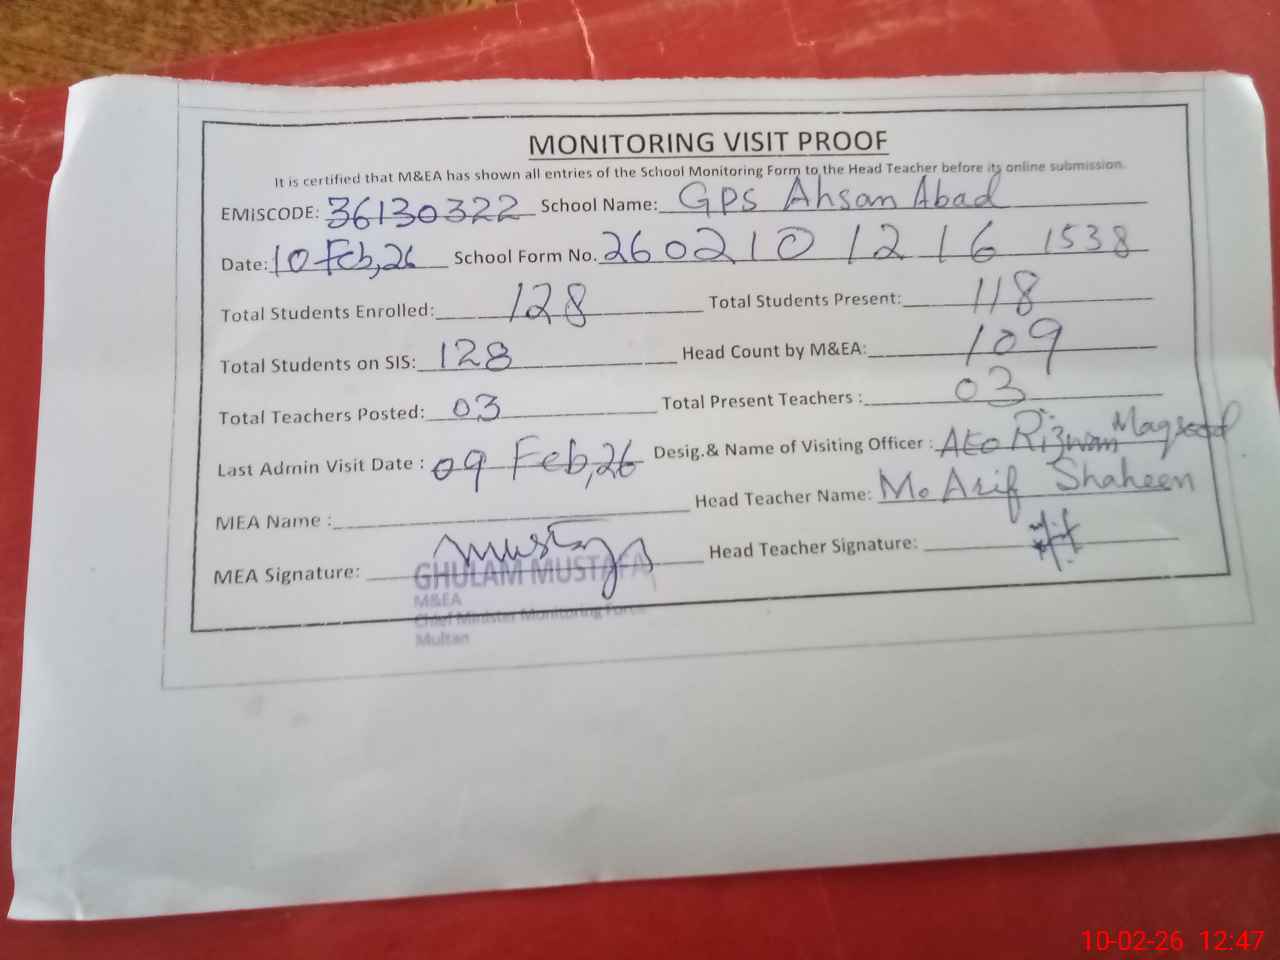 MONITORING VISIT PROOF
It is certified that M&EA has shown all entries of the School Monitoring Form to the Head Teacher before its online submission.
EMISCODE: 36130322 School Name: GPS Ahsan Abad
Date: 10 Feb, 26 School Form No. 260210 1216 1538
Total Students Enrolled: 128 Total Students Present: 118
Total Students on SIS: 128 Head Count by M&EA: 109
Total Teachers Posted: 03 Total Present Teachers : 03
Last Admin Visit Date : 09 Feb, 26 Desig.& Name of Visiting Officer : AEO Rizwan Maqsood
MEA Name : Head Teacher Name: M. Arif Shaheen
MEA Signature: Mustafa Head Teacher Signature:
GHULAM MUSTAFA
M&EA
Chief Minister Monitoring Force
Multan
10-02-26 12:47